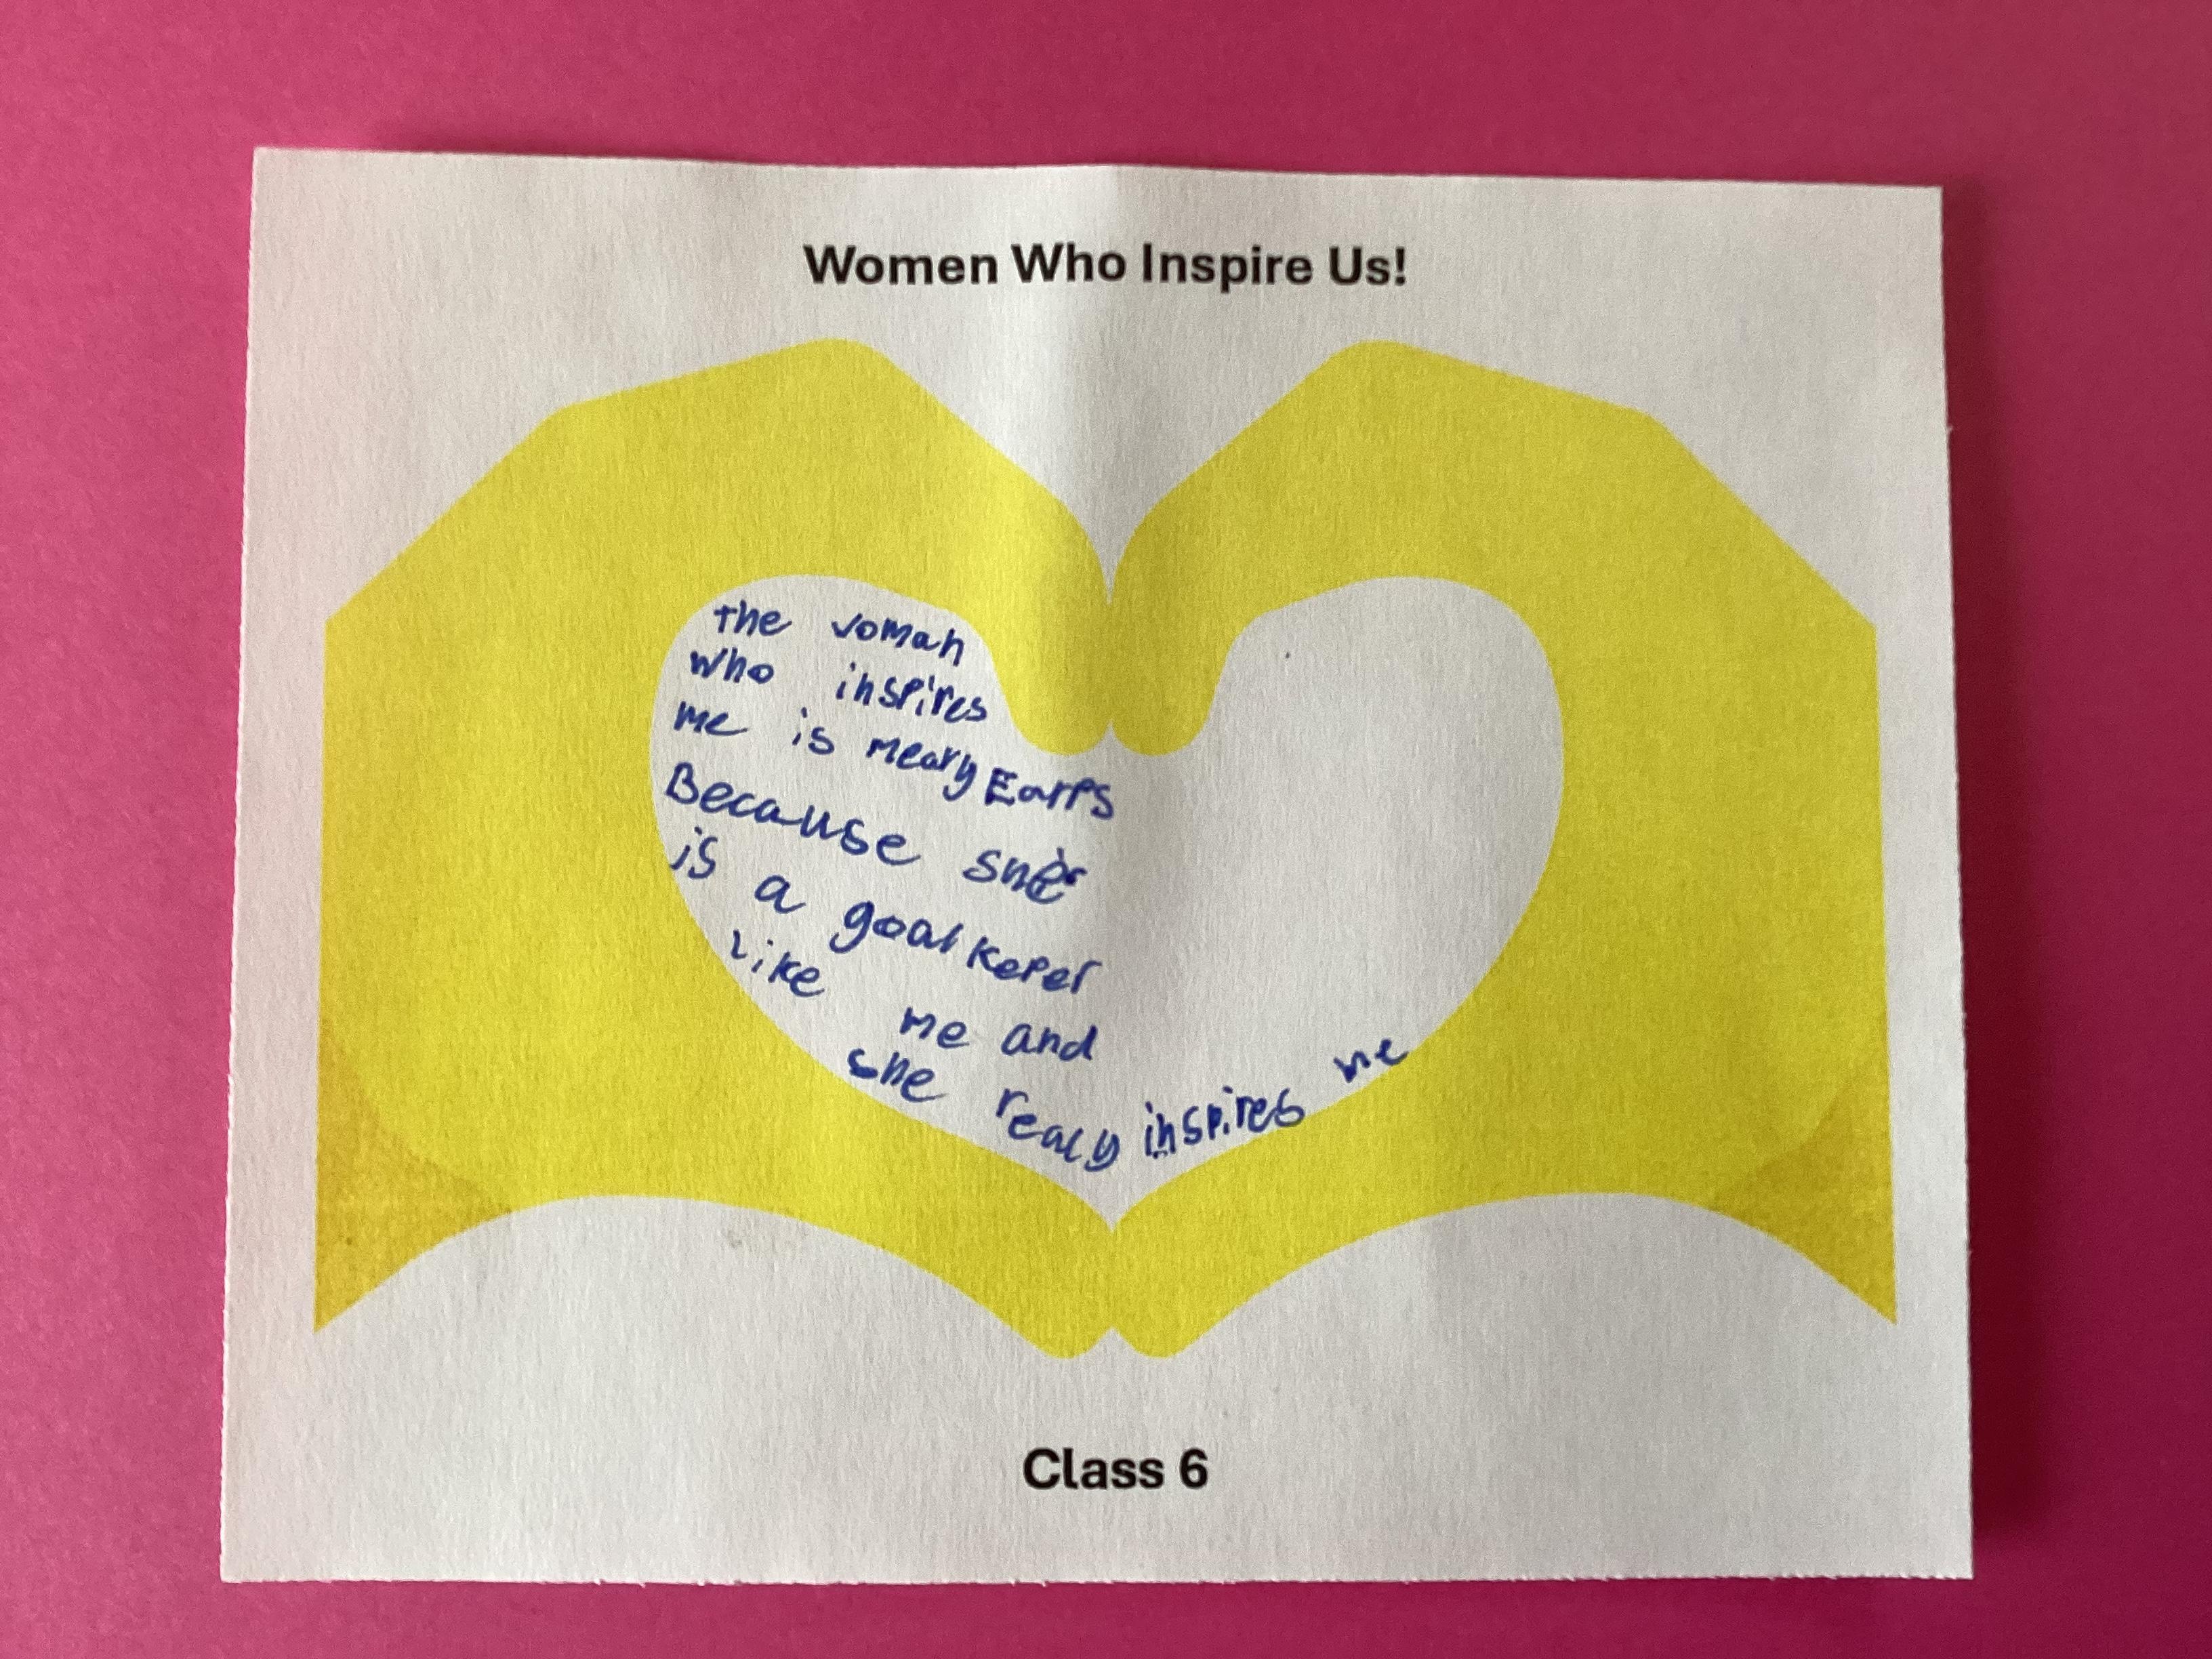 Women Who Inspire Us!
the voman
who inspires
me is meary Earps
Because she
is a goal keper
Like me and
she realy inspires me
Class 6